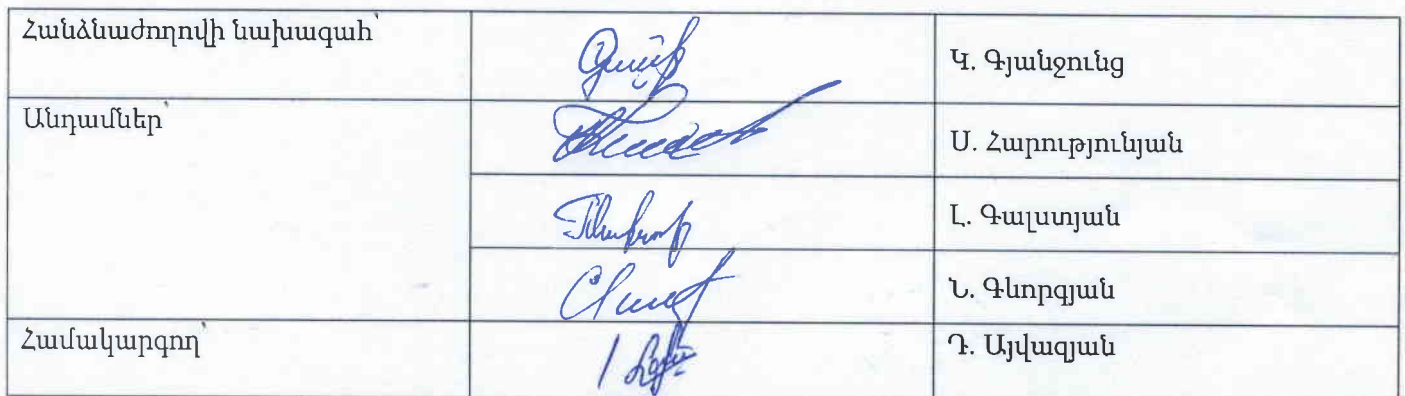 Հանձնաժողովի նախագահ՝
Կ. Գյանջունց
Անդամներ՝
Ս. Հարությունյան
Լ. Գալստյան
Ն. Գևորգյան
Համակարգող՝
Դ. Այվազյան